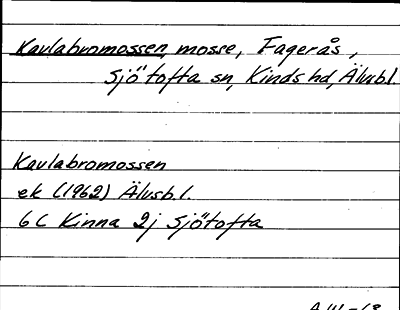 Kavlabromossen, mosse, Fagerås,
Sjötofta sn, Kinds hd, Älvsb.l.
Kavlabromossen
ek (1962) Älvsb.l.
6C Kinna 2j Sjötofta